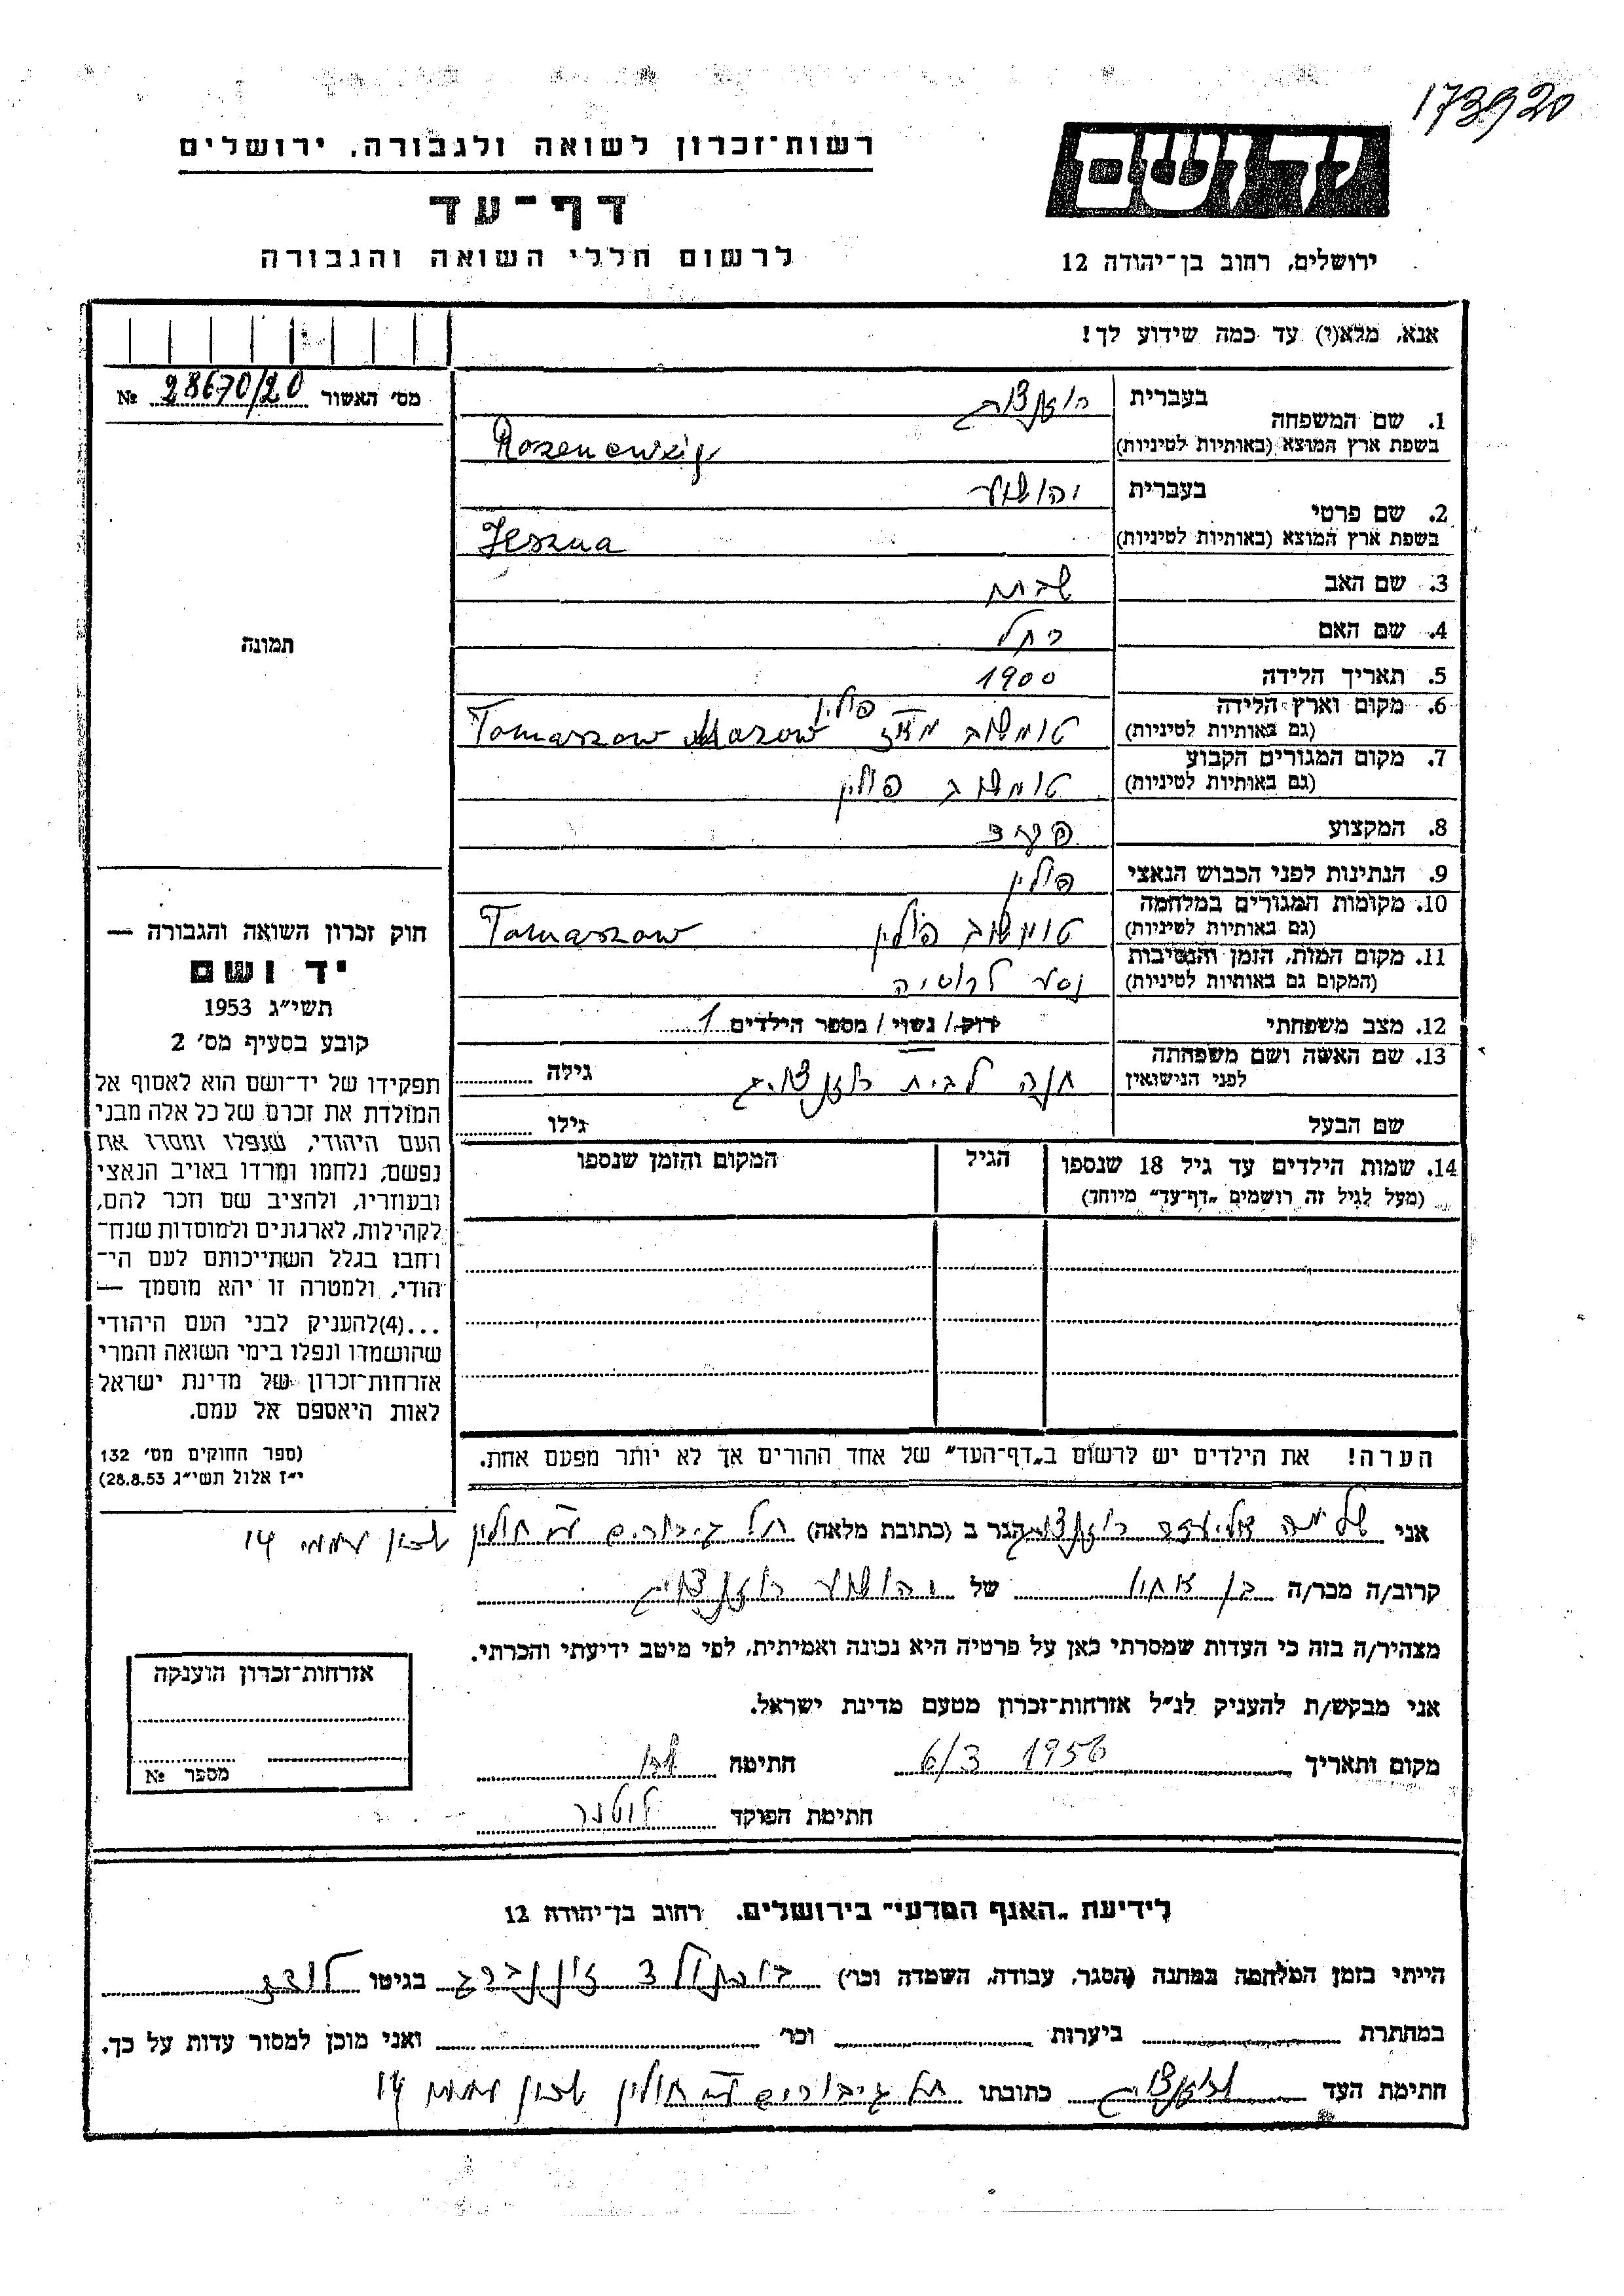 173920
יד ושם
ירושלים, רחוב בן־יהודה 12
רשות־זכרון לשואה ולגבורה, ירושלים
דף־עד
לרשום חללי השואה והגבורה
אנא, מלא(י) עד כמה שידוע לך!
מס׳ האשור 28670/20 №
1. שם המשפחה
בעברית
בשפת ארץ המוצא (באותיות לטיניות) Rozencwaig
2. שם פרטי
בעברית יהושע
בשפת ארץ המוצא (באותיות לטיניות) Jeszua
3. שם האב שבתי
4. שם האם רחל
5. תאריך הלידה 1900
6. מקום וארץ הלידה
(גם באותיות לטיניות) טומשוב מאז פולין Tomaszow Mazow
7. מקום המגורים הקבוע
(גם באותיות לטיניות) טומשוב פולין
8. המקצוע
9. הנתינות לפני הכבוש הנאצי פולין
10. מקומות המגורים במלחמה
(גם באותיות לטיניות) טומשוב פולין Tomaszow
11. מקום המות, הזמן והנסיבות
(המקום גם באותיות לטיניות) נסע לרוסיה
12. מצב משפחתי רוק/ נשוי/ מספר הילדים 1
13. שם האשה ושם משפחתה
לפני הנישואין חנה לבית רוזנצוייג גילה
שם הבעל גילו
14. שמות הילדים עד גיל 18 שנספו הגיל המקום והזמן שנספו
(מעל לגיל זה רושמים „דף־עד״ מיוחד)
הערה! את הילדים יש לרשום ב„דף־העד״ של אחד ההורים אך לא יותר מפעם אחת.
תמונה
חוק זכרון השואה והגבורה —
יד ושם
תשי״ג 1953
קובע בסעיף מס׳ 2
תפקידו של יד־ושם הוא לאסוף אל
המולדת את זכרם של כל אלה מבני
העם היהודי, שנפלו ומסרו את
נפשם, נלחמו ומרדו באויב הנאצי
ובעוזריו, ולהציב שם וזכר להם,
לקהילות, לארגונים ולמוסדות שנח־
רחבו בגלל השתייכותם לעם הי־
הודי, ולמטרה זו יהא מוסמך —
...(4)להעניק לבני העם היהודי
שהושמדו ונפלו בימי השואה והמרי
אזרחות־זכרון של מדינת ישראל
לאות היאספם אל עמם.
(ספר החוקים מס׳ 132
י״ז אלול תשי״ג 28.8.53)
אני שלימה אליעזר רוזנצוייג הגר ב (כתובת מלאה) תל גיבורים ע״י חולין שכון עממי 14
קרוב/ה מכר/ה בן אחיו של יהושע רוזנצוייג
מצהיר/ה בזה כי העדות שמסרתי כאן על פרטיה היא נכונה ואמיתית, לפי מיטב ידיעתי והכרתי.
אני מבקש/ת להעניק לנ״ל אזרחות־זכרון מטעם מדינת ישראל.
מקום ותאריך 6/3 1956 חתימה
חתימת הפוקד
אזרחות־זכרון הוענקה
מספר №
לידיעת „האגף המדעי״ בירושלים, רחוב בן־יהודה 12
הייתי בזמן המלחמה במחנה (הסגר, עבודה, השמדה וכו׳) בוכנולד זוננברג בגיטו לודז
במחתרת ביערות וכו׳ ואני מוכן למסור עדות על כך.
חתימת העד רוזנצוייג כתובתו תל גיבורים ע״י חולין שכון עממי 14